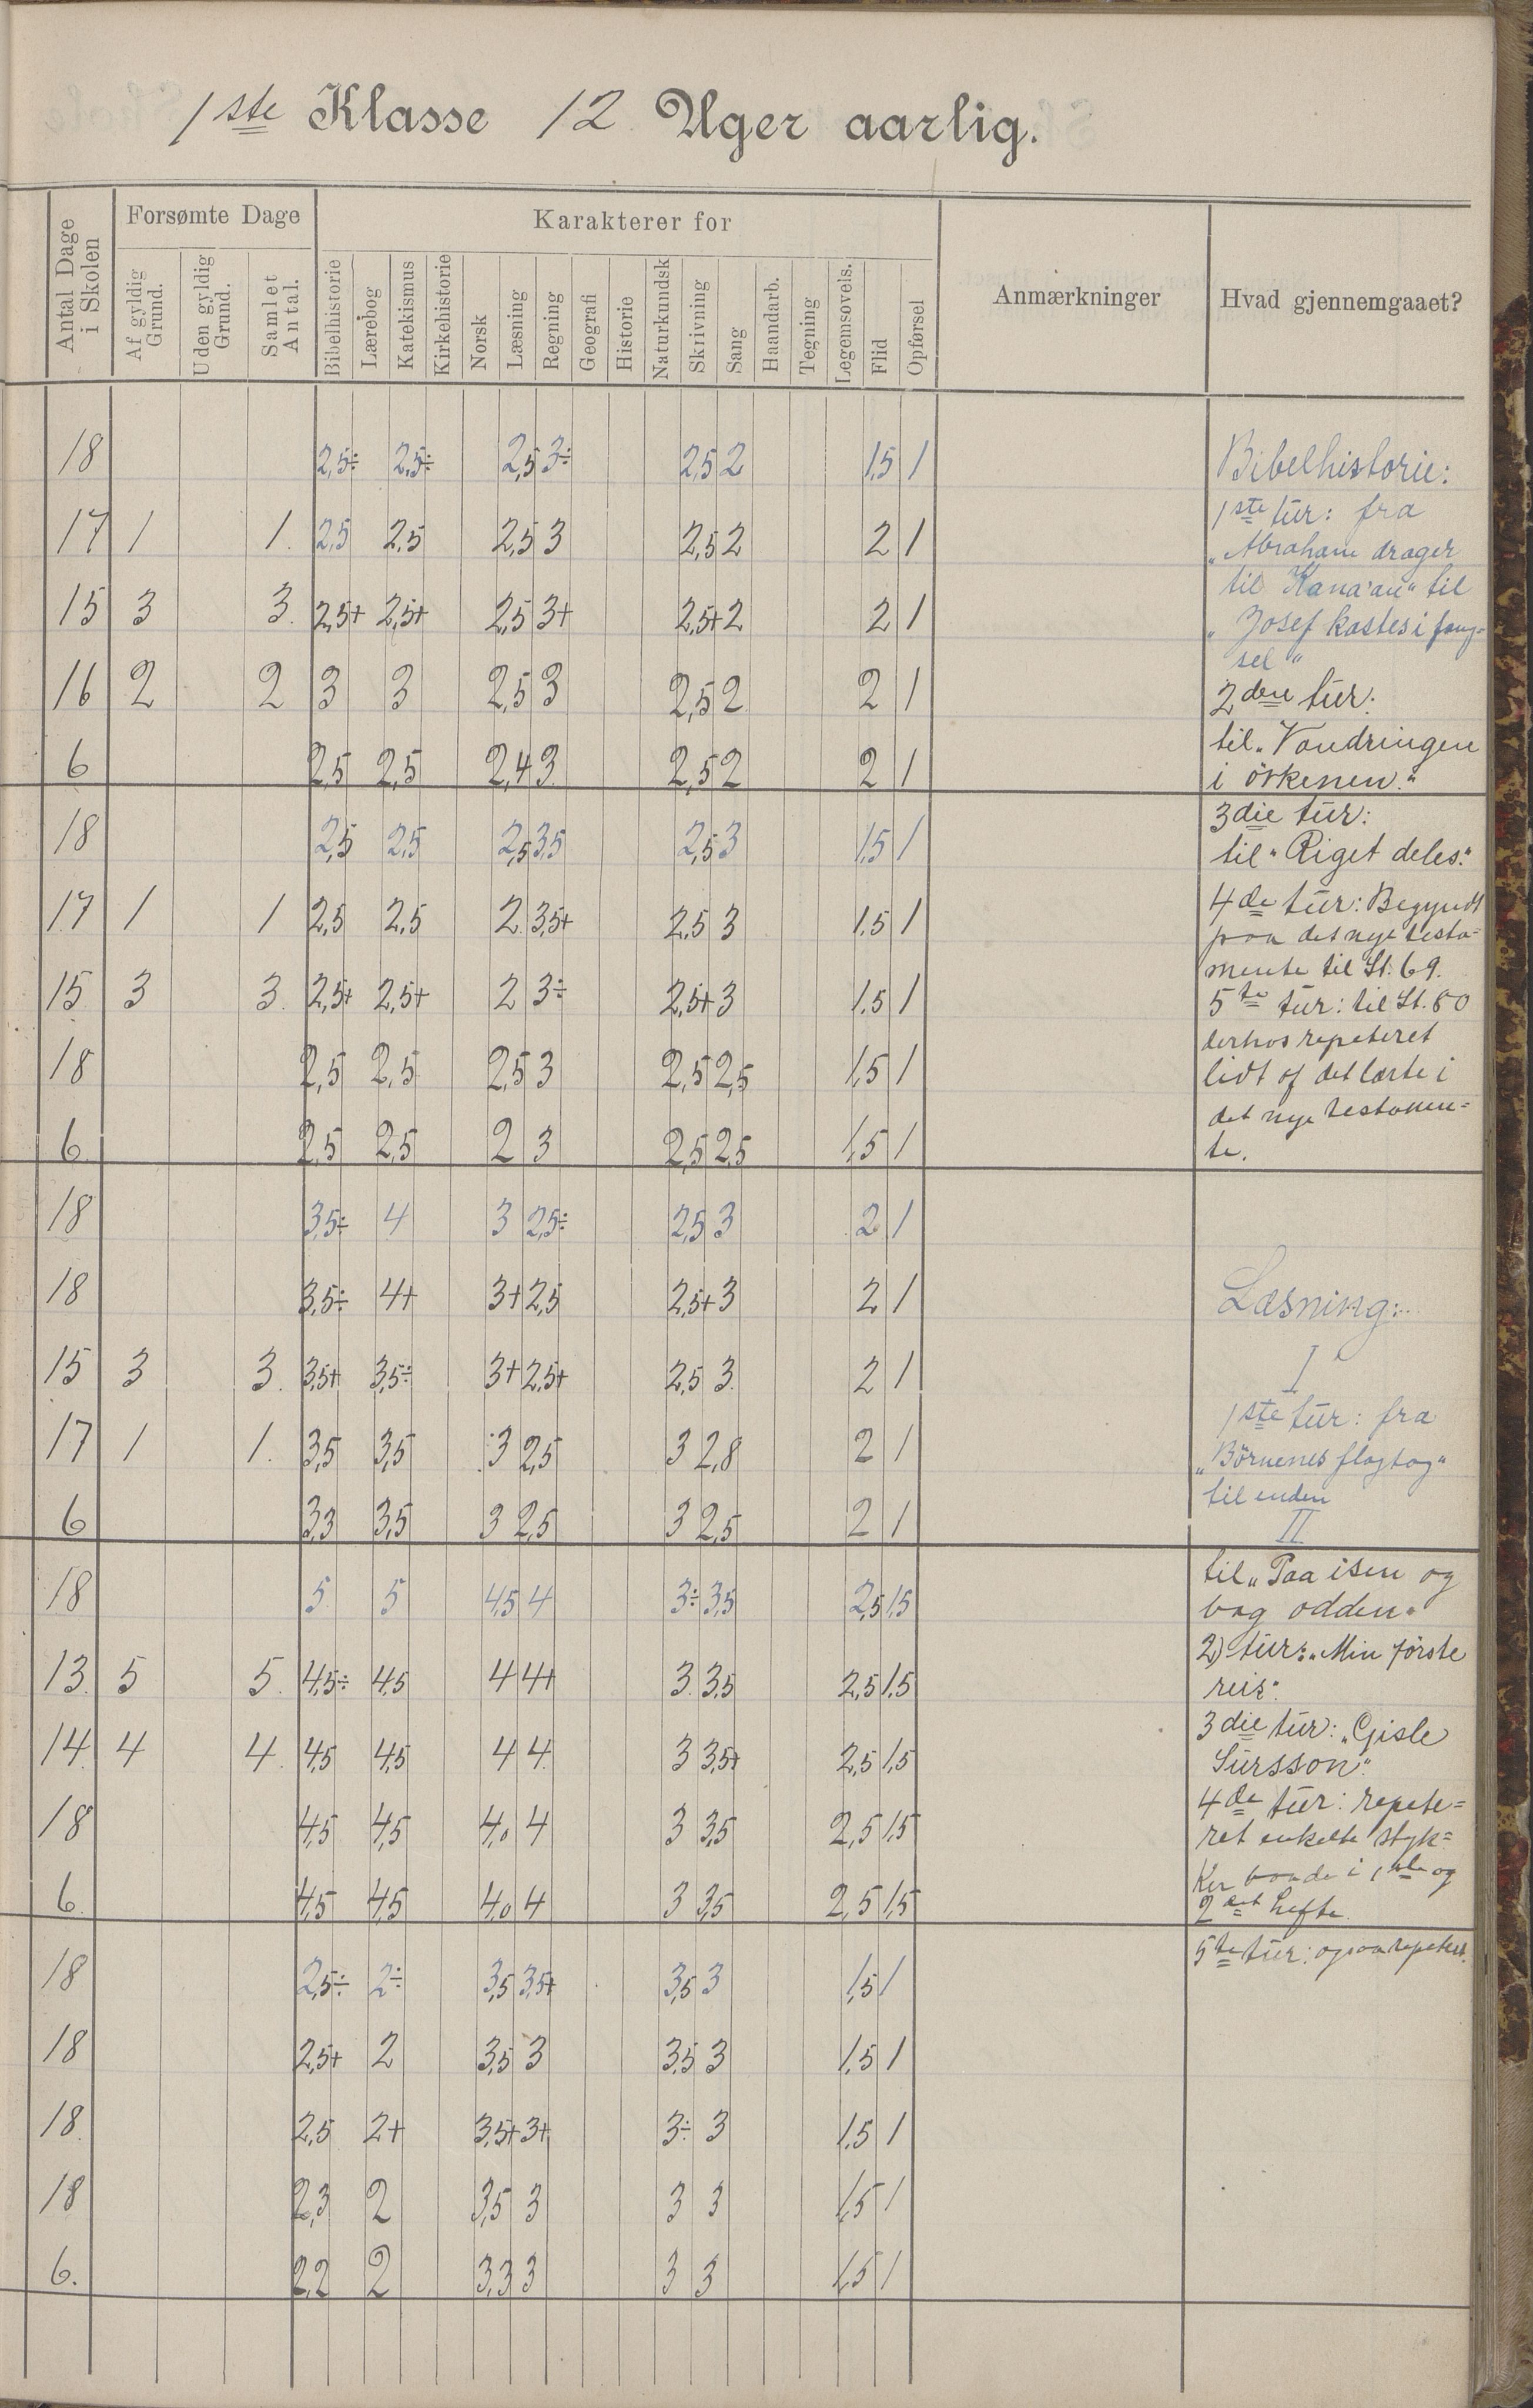 1ste Klasse 12 Uger aarlig.
Antal Dage i Skolen
Forsømte Dage
Af gyldig Grund.
Uden gyldig Grund.
Samlet Antal.
Karakterer for
Bibelhistorie
Lærebog
Katekismus
Kirkehistorie
Norsk
Læsning
Regning
Geografi
Historie
Naturkundsk
Skrivning
Sang
Haandarb.
Tegning
Legemsøvels.
Flid
Opførsel
Anmærkninger
Hvad gjennemgaaet?
18 2,5÷ 2,5÷ 2,5 3÷ 2,5 2 1,5 1
17 1 1. 2,5 2,5 2,5 3 2,5 2 2 1
15 3 3. 2,5+ 2,5+ 2,5 3+ 2,5+ 2 2 1
16 2 2 3 3 2,5 3 2,5 2 2 1
6 2,5 2,5 2,4 3 2,5 2 2 1
18 2,5 2,5 2,5 3,5 2,5 3 1,5 1
17 1 1 2,5 2,5 2 3,5+ 2,5 3 1,5 1
15 3 3. 2,5+ 2,5+ 2 3÷ 2,5+ 3 1,5 1
18 2,5 2,5 2,5 3 2,5 2,5 1,5 1
6 2,5 2,5 2 3 2,5 2,5 1,5 1
18 3,5÷ 4 3 2,5÷ 2,5 3 2 1
18 3,5÷ 4+ 3+ 2,5 2,5+ 3 2 1
15 3 3. 3,5+ 3,5÷ 3+ 2,5+ 2,5 3 2 1
17 1 1. 3,5 3,5 3 2,5 3 2,8 2 1
6 3,3 3,5 3 2,5 3 2,5 2 1
18 5 5 4,5 4 3÷ 3,5 2,5 1,5
13. 5 5. 4,5÷ 4,5 4 4+ 3 3,5 2,5 1,5
14. 4 4. 4,5 4,5 4 4 3 3,5+ 2,5 1,5
18 4,5 4,5 4,0 4 3 3,5 2,5 1,5
6. 4,5 4,5 4,0 4 3 3,5 2,5 1,5
18 2,5÷ 2÷ 3,5 3,5+ 3,5 3 1,5 1
18 2,5+ 2 3,5 3 3,5 3 1,5 1
18. 2,5 2+ 3,5+ 3+ 3÷ 3 1,5 1
18 2,3 2 3,5 3 3 3 1,5 1
6. 2,2 2 3,3 3 3 3 1,5 1
Bibelhistorie:
1ste tur: fra
"Abraham drager
til Kana'an" til
"Josef kastes i fæng=
sel"
2den tur:
til "Vandringen
i örkenen."
3die tur:
til "Riget deles."
4de tur: Begyndt
paa det nye testa=
mente til St. 69.
5te tur: til St. 80
derhos repeteret
lidt af det lærte i
det nye testamen=
te.
Læsning:
I
1ste tur: fra
"Börnenes flagtog"
til enden
II
til "Paa isen og
bag odden"
2) tur: "Min förste
reis".
3die tur: "Gisle
Sursson".
4de tur: repete=
ret enkelte styk=
ker baade i 1ste og
2det hefte.
5te tur: ogsaa repeteret.